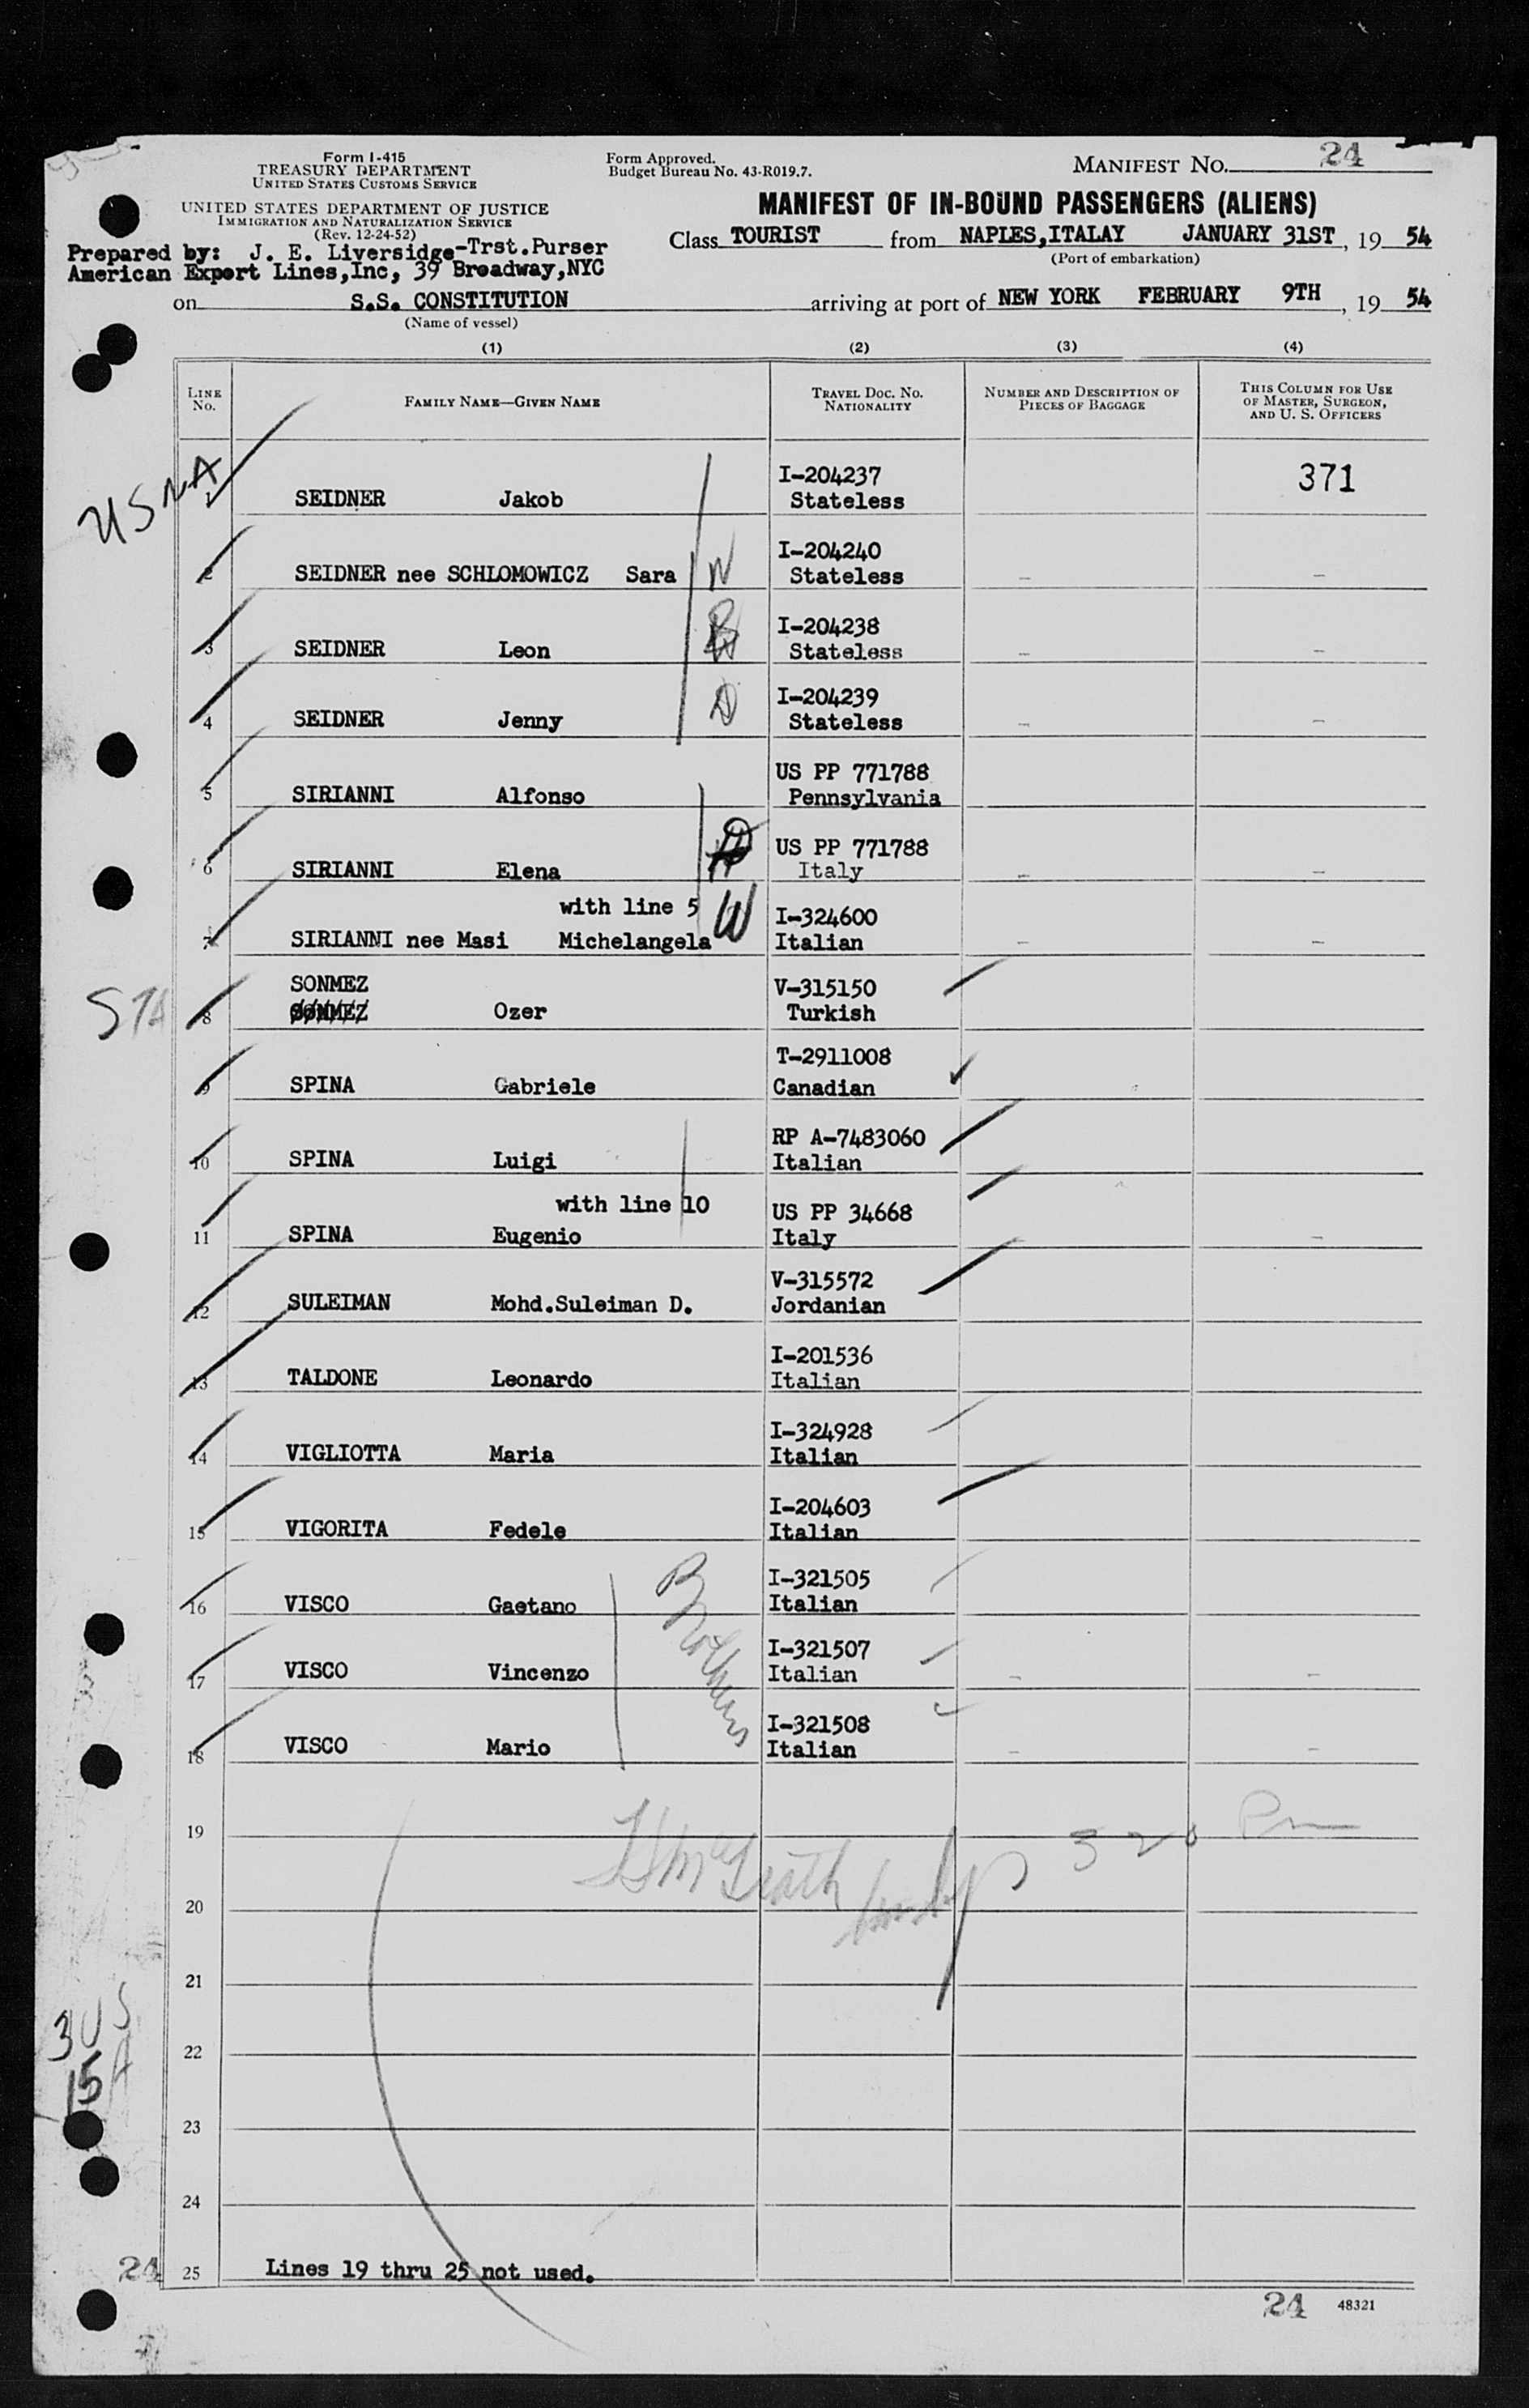 Form I-415
TREASURY DEPARTMENT
UNITED STATES CUSTOMS SERVICE
UNITED STATES DEPARTMENT OF JUSTICE
IMMIGRATION AND NATURALIZATION SERVICE
(Rev. 12-24-52)
Prepared by: J. E. Liversidge-Trst.Purser
American Export Lines,Inc, 39 Broadway,NYC
Form Approved.
Budget Bureau No. 43-R019.7.
MANIFEST NO. 24
MANIFEST OF IN-BOUND PASSENGERS (ALIENS)
Class TOURIST from NAPLES,ITALAY JANUARY 31ST, 19 54
(Port of embarkation)
on S.S. CONSTITUTION arriving at port of NEW YORK FEBRUARY 9TH, 19 54
(Name of vessel)
(1) (2) (3) (4)
LINE No. FAMILY NAME—GIVEN NAME TRAVEL DOC. NO. NATIONALITY NUMBER AND DESCRIPTION OF PIECES OF BAGGAGE THIS COLUMN FOR USE OF MASTER, SURGEON, AND U. S. OFFICERS
I-204237 371
1 SEIDNER Jakob Stateless
I-204240
2 SEIDNER nee SCHLOMOWICZ Sara W Stateless – –
I-204238
3 SEIDNER Leon Stateless – –
I-204239
4 SEIDNER Jenny D Stateless – –
US PP 771788
5 SIRIANNI Alfonso Pennsylvania
US PP 771788
6 SIRIANNI Elena Italy – –
with line 5 W I-324600
7 SIRIANNI nee Masi Michelangela Italian – –
SONMEZ V-315150
8 SONMEZ Ozer Turkish
T-2911008
9 SPINA Gabriele Canadian
RP A-7483060
10 SPINA Luigi Italian
with line 10 US PP 34668
11 SPINA Eugenio Italy –
V-315572
12 SULEIMAN Mohd.Suleiman D. Jordanian
I-201536
13 TALDONE Leonardo Italian
I-324928
14 VIGLIOTTA Maria Italian
I-204603
15 VIGORITA Fedele Italian
I-321505
16 VISCO Gaetano Brothers Italian
I-321507
17 VISCO Vincenzo Italian – –
I-321508
18 VISCO Mario Italian – –
19
20
21
3 US
22
15 A
23
24
24 25 Lines 19 thru 25 not used.
24 48321